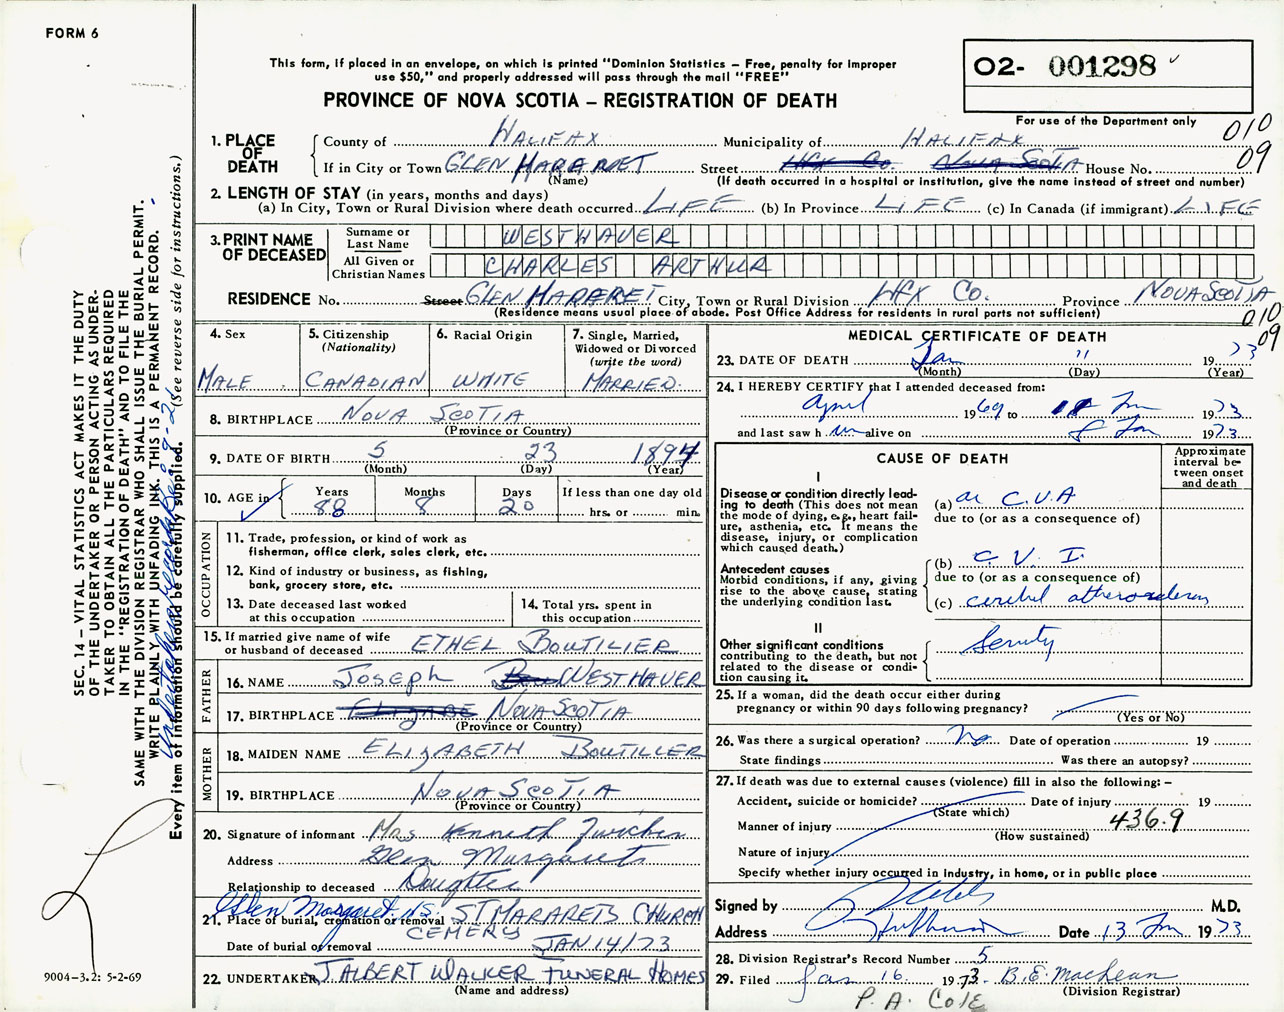 FORM 6
This form, if placed in an envelope, on which is printed "Dominion Statistics – Free, penalty for improper
use $50," and properly addressed will pass through the mail "FREE"
PROVINCE OF NOVA SCOTIA – REGISTRATION OF DEATH
O2- 001298
For use of the Department only
010
09
1. PLACE OF DEATH
County of HALIFAX Municipality of HALIFAX
If in City or Town GLEN MARARET Street HFX Co. NOVA SCOTIA House No.
(Name) (If death occurred in a hospital or institution, give the name instead of street and number)
2. LENGTH OF STAY (in years, months and days)
(a) In City, Town or Rural Division where death occurred LIFE (b) In Province LIFE (c) In Canada (if immigrant) LIFE
3. PRINT NAME OF DECEASED
Surname or Last Name WESTHAVER
All Given or Christian Names CHARLES ARTHUR
RESIDENCE No. Street GLEN MARARET City, Town or Rural Division HFX Co. Province NOVA SCOTIA
(Residence means usual place of abode. Post Office Address for residents in rural parts not sufficient)
010
09
4. Sex
MALE
5. Citizenship
(Nationality)
CANADIAN
6. Racial Origin
WHITE
7. Single, Married,
Widowed or Divorced
(write the word)
MARRIED
8. BIRTHPLACE NOVA SCOTIA
(Province or Country)
9. DATE OF BIRTH 5 23 1894
(Month) (Day) (Year)
10. AGE in Years Months Days If less than one day old
88 8 20 hrs. or min.
OCCUPATION
11. Trade, profession, or kind of work as
fisherman, office clerk, sales clerk, etc.
12. Kind of industry or business, as fishing,
bank, grocery store, etc.
13. Date deceased last worked
at this occupation
14. Total yrs. spent in
this occupation
15. If married give name of wife
or husband of deceased ETHEL BOUTILIER
FATHER
16. NAME JOSEPH WESTHAVER
17. BIRTHPLACE NOVA SCOTIA
(Province or Country)
MOTHER
18. MAIDEN NAME ELIZABETH BOUTILLER
19. BIRTHPLACE NOVA SCOTIA
(Province or Country)
20. Signature of informant Mrs Kenneth
Address Glen Margarets
Relationship to deceased Daughter
Glen Margaret N.S.
21. Place of burial, cremation or removal ST MARARETS CHURCH
CEMERY
Date of burial or removal JAN 14/73
22. UNDERTAKER J. ALBERT WALKER FUNERAL HOMES
(Name and address)
MEDICAL CERTIFICATE OF DEATH
23. DATE OF DEATH Jan 11 1973
(Month) (Day) (Year)
24. I HEREBY CERTIFY that I attended deceased from:
April 1969 to 11 Jan 1973
and last saw him alive on 8 Jan 1973
CAUSE OF DEATH
Approximate
interval be-
tween onset
and death
I
Disease or condition directly lead-
ing to death (This does not mean
the mode of dying, e.g., heart fail-
ure, asthenia, etc. It means the
disease, injury, or complication
which caused death.)
(a) ac C.V.A
due to (or as a consequence of)
Antecedent causes
Morbid conditions, if any, giving
rise to the above cause, stating
the underlying condition last.
(b) C. V. I.
due to (or as a consequence of)
(c) cerebral atherosclerosis
II
Other significant conditions
contributing to the death, but not
related to the disease or condi-
tion causing it.
Senility
25. If a woman, did the death occur either during
pregnancy or within 90 days following pregnancy?
(Yes or No)
26. Was there a surgical operation? No Date of operation 19
State findings Was there an autopsy?
27. If death was due to external causes (violence) fill in also the following: –
Accident, suicide or homicide? Date of injury 19
(State which)
Manner of injury 436.9
(How sustained)
Nature of injury
Specify whether injury occurred in industry, in home, or in public place
Signed by M.D.
Address Date 13 Jan 1973
28. Division Registrar's Record Number 5
29. Filed Jan 16 1973. B.E. MacLean
(Division Registrar)
P. A. Cole
SEC. 14 – VITAL STATISTICS ACT MAKES IT THE DUTY
OF THE UNDERTAKER OR PERSON ACTING AS UNDER-
TAKER TO OBTAIN ALL THE PARTICULARS REQUIRED
IN THE "REGISTRATION OF DEATH" AND TO FILE THE
SAME WITH THE DIVISION REGISTRAR WHO SHALL ISSUE THE BURIAL PERMIT.
WRITE PLAINLY WITH UNFADING INK. THIS IS A PERMANENT RECORD.
Every item of information should be carefully supplied. (See reverse side for instructions.)
9004-3.2: 5-2-69